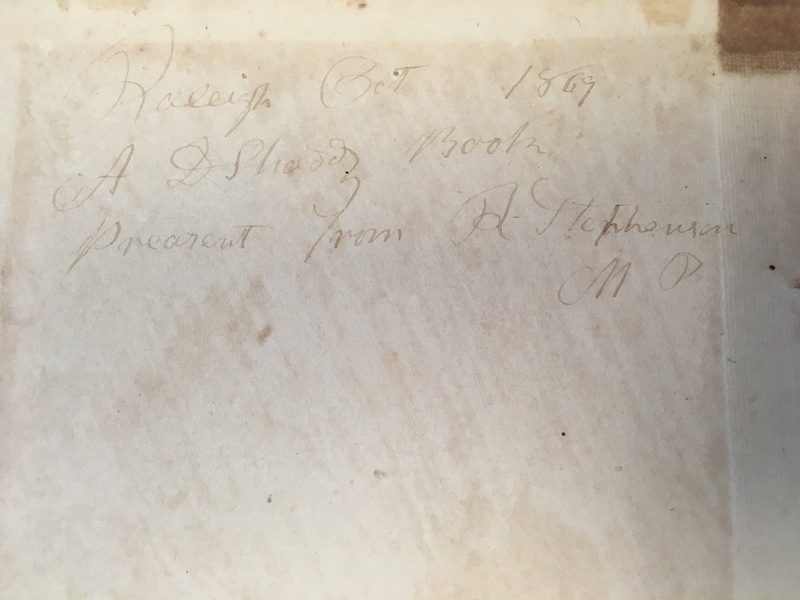 Raleigh Oct 1869
A D Shadd Book
Prearent from R Stephenson
M P